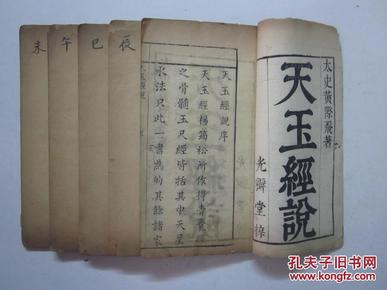 太史黃際飛著
天玉經說
光霽堂梓
天玉經說序
天玉經楊筠松所作得青囊
之骨髓玉尺經皆括其中天星
水法只此一書為的其餘諸家
天玉經說
辰
巳
午
未
孔夫子旧书网